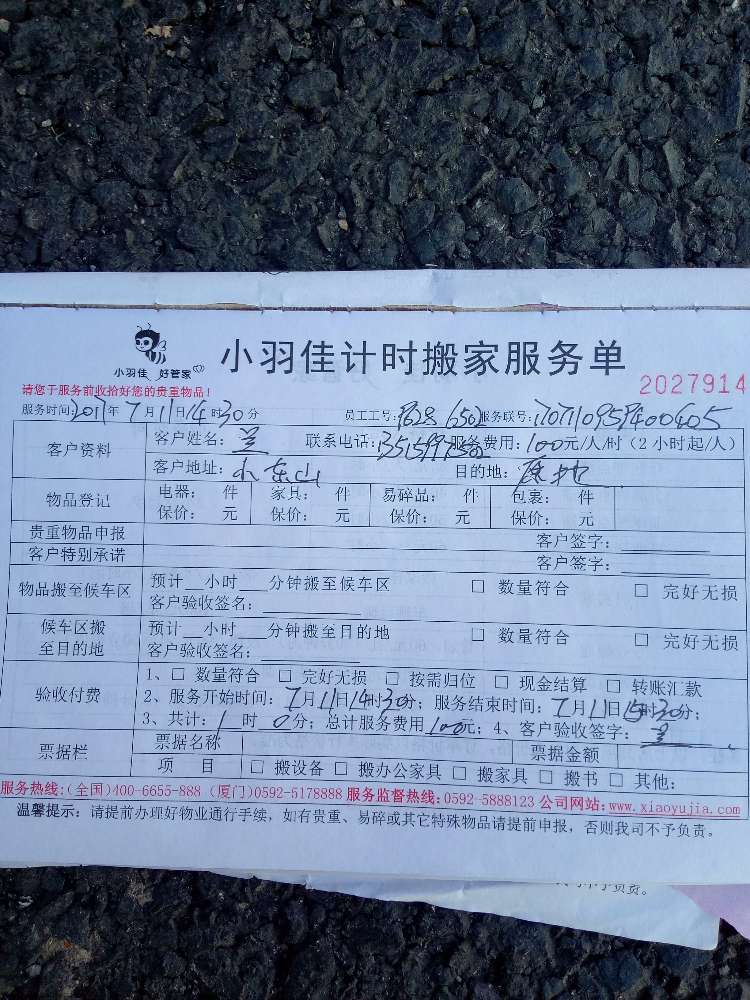 小羽佳 好管家
小羽佳计时搬家服务单
2027914
请您于服务前收拾好您的贵重物品!
服务时间:2017年7月11日14时30分 员工工号: 服务联号:
客户资料 客户姓名:兰 联系电话: 服务费用:100元/人/时(2小时起/人)
客户地址:小东山 目的地:原地
物品登记 电器: 件 家具: 件 易碎品: 件 包裹: 件
保价: 元 保价: 元 保价: 元 保价: 元
贵重物品申报 客户签字:
客户特别承诺 客户签字:
物品搬至候车区 预计__小时___分钟搬至候车区 □ 数量符合 □ 完好无损
客户验收签名:
候车区搬至目的地 预计__小时___分钟搬至目的地 □ 数量符合 □ 完好无损
客户验收签名:
验收付费 1、□ 数量符合 □ 完好无损 □ 按需归位 □ 现金结算 □ 转账汇款
2、服务开始时间:7月11日14时30分;服务结束时间:7月11日15时30分;
3、共计:1时0分;总计服务费用100元;4、客户验收签字:兰
票据栏 票据名称 票据金额
项 目 □ 搬设备 □ 搬办公家具 □ 搬家具 □ 搬书 □ 其他:
服务热线:(全国)400-6655-888 (厦门)0592-5178888 服务监督热线:0592-5888123 公司网站:www.xiaoyujia.com
温馨提示:请提前办理好物业通行手续,如有贵重、易碎或其它特殊物品请提前申报,否则我司不予负责。